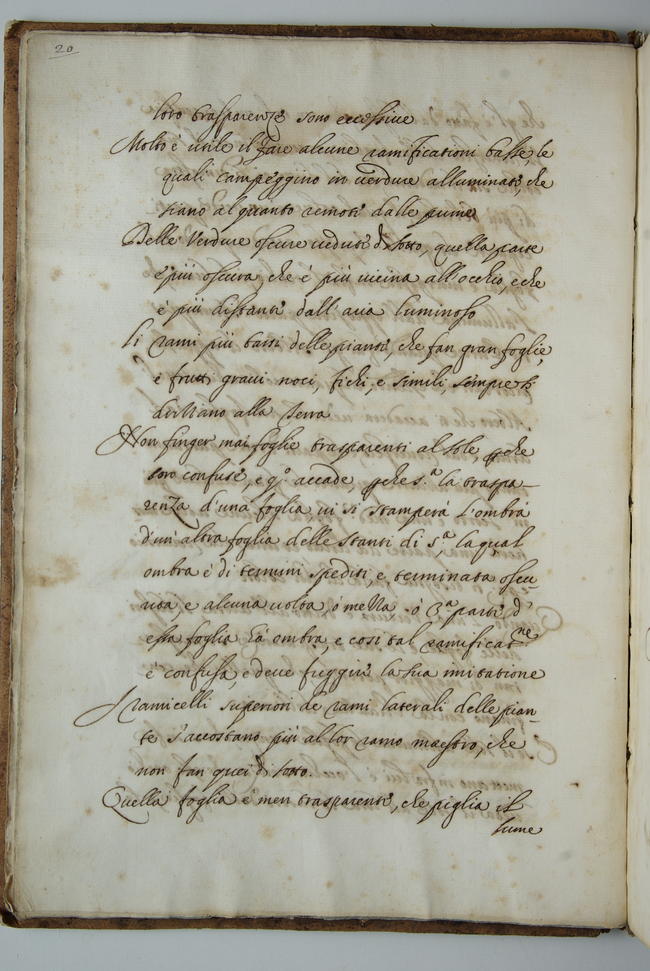 20
loro trasparenze sono eccessive
Molto è utile il fare alcune ramificationi basse, le
quali campeggino in verdure alluminate, che
siano alquanto remote dalle prime
Delle Verdure oscure vedute di sotto, quella parte
è più oscura, che è più vicina all'occhio, e che
è più distante dall'aria luminosa
Li rami più bassi delle piante, che fan gran foglie,
e frutti gravi noci, fichi, e simili, sempre si
drizzano alla Terra
Non finger mai foglie trasparenti al sole, pche
son confuse, e q.o accade, pche s.a la traspa-
renza d'una foglia vi si stamperà l'ombra
d'un'altra foglia delle stanti di s.a, la qual
ombra è di termini spediti, e terminata oscu-
rità, e alcuna volta, ò mezza ò 3.a parte d'
essa foglia hà ombra, e così tal ramificat.ne
è confusa, e deve fuggire la sua imitatione
I ramicelli superiori de rami laterali delle pian-
te s'accostano più al lor ramo maestro, che
non fan quei di sotto.
Quella foglia è men trasparente, che piglia il
lume